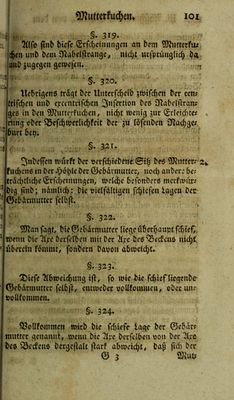 Mutterkuchen. 101
§. 319.
Also sind diese Erscheinungen an dem Mutterku-
chen und dem Nabelstrange, nicht ursprünglich da
und zugegen gewesen.
§. 320.
Uebrigens trägt der Unterscheid zwischen der cen-
trischen und eccentrischen Insertion des Nabelstran-
ges in den Mutterkuchen, nicht wenig zur Erleichte-
rung oder Beschwerlichkeit der zu lösenden Nachge-
burt bey.
§. 321.
Indessen würkt der verschiedene Sitz des Mutter-
kuchens in der Höhle der Gebärmutter, noch andere be-
trächtliche Erscheinungen, welche besonders merkwür-
dig sind; nämlich: die vielfältigen schiefen Lagen der
Gebärmutter selbst.
§. 322.
Man sagt, die Gebärmutter liege überhaupt schief,
wenn die Axe derselben mit der Axe des Beckens nicht
überein kömmt, sondern davon abweicht.
§. 323.
Diese Abweichung ist, so wie die schief liegende
Gebärmutter selbst, entweder vollkommen, oder un-
vollkommen.
§. 324.
Vollkommen wird die schiefe Lage der Gebär-
mutter genannt, wenn die Axe derselben von der Axe
des Beckens dergestalt stark abweicht, daß sich der
G 3 Mut-